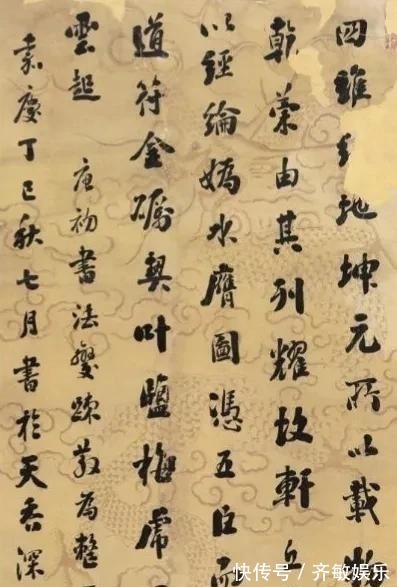 四維地坤元所以載
乾由其列耀故軒丘
以經綸媯水膺圖憑五臣而
道符金礪契叶鹽梅虎
雲起 唐初書法變疎散為整
嘉慶丁巳秋七月書於天香深
快传号/齐敏娱乐